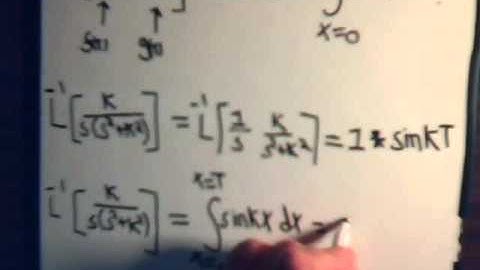 f(s) g(s) x=0
L⁻¹[K/(s(s²+K²))] = L⁻¹[1/s K/(s²+K²)] = 1 * sinKT
L⁻¹[K/(s(s²+K²))] = ∫ x=T sinKx dx =